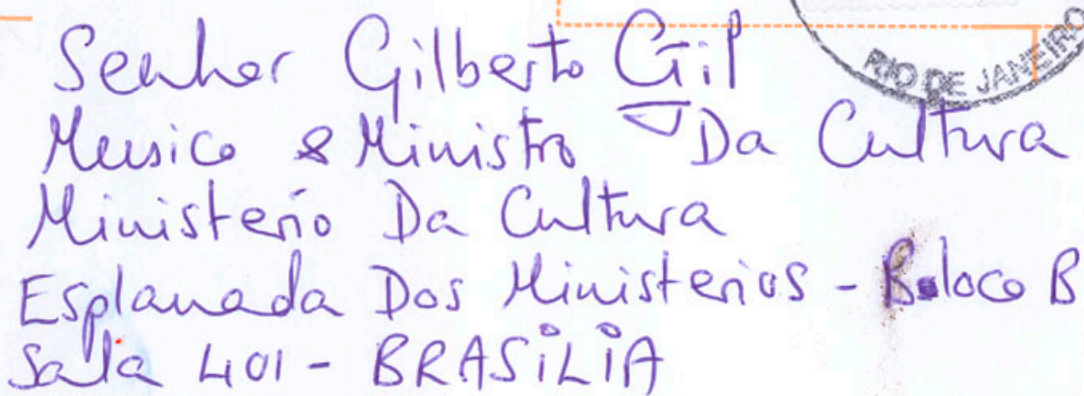 RIO DE JANEIRO
Senhor Gilberto Gil
Musico & Ministro Da Cultura
Ministerio Da Cultura
Esplanada Dos Ministerios - Bloco B
Sala 401 - BRASILIA